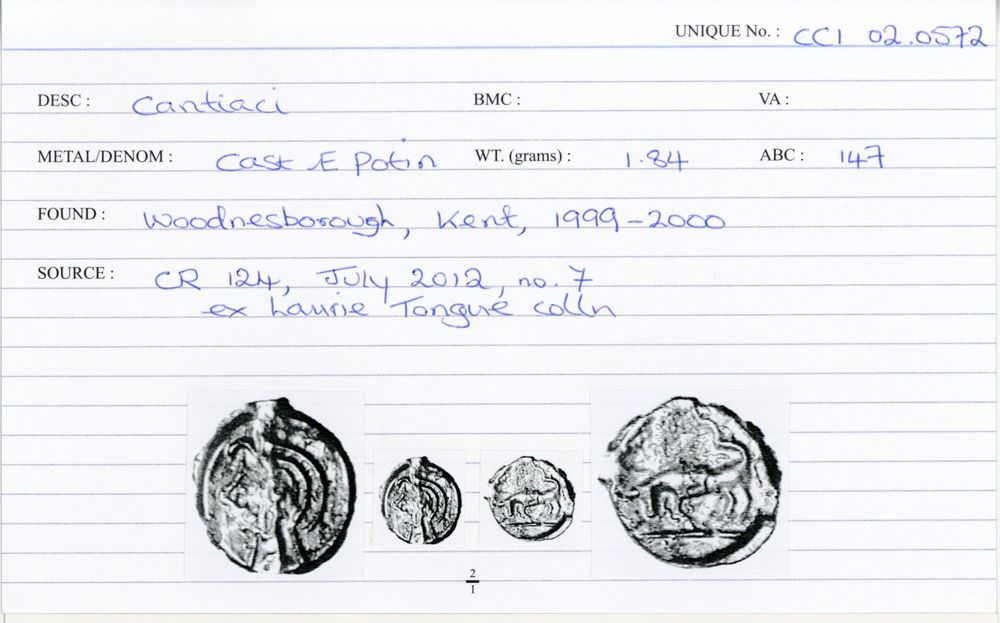 UNIQUE No. : CCI 02.0572
DESC : Cantiaci BMC : VA :
METAL/DENOM : Cast Æ Potin WT. (grams) : 1.84 ABC : 147
FOUND : Woodnesborough, Kent, 1999-2000
SOURCE : CR 124, July 2012, no. 7
ex Laurie Tongue colln
2
1